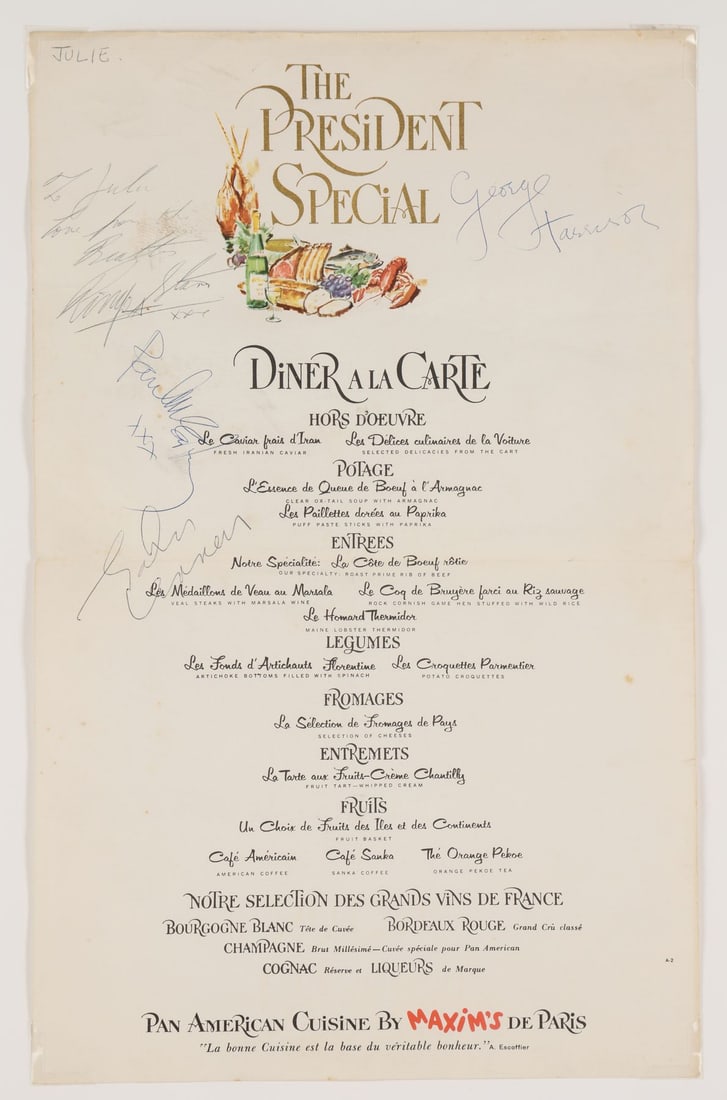 JULIE.
THE
PRESIDENT
SPECIAL
To Julie
love from the
Beatles
Ringo Starr
xxx
George
Harrison
Paul McCartney
xxx
John
Lennon
DINER A LA CARTE
HORS D'OEUVRE
Le Caviar frais d'Iran Les Délices culinaires de la Voiture
FRESH IRANIAN CAVIAR SELECTED DELICACIES FROM THE CART
POTAGE
L'Essence de Queue de Boeuf à l'Armagnac
CLEAR OX-TAIL SOUP WITH ARMAGNAC
Les Paillettes dorées au Paprika
PUFF PASTE STICKS WITH PAPRIKA
ENTREES
Notre Spécialité: La Côte de Boeuf rôtie
OUR SPECIALTY: ROAST PRIME RIB OF BEEF
Les Médaillons de Veau au Marsala Le Coq de Bruyère farci au Riz sauvage
VEAL STEAKS WITH MARSALA WINE ROCK CORNISH GAME HEN STUFFED WITH WILD RICE
Le Homard Thermidor
MAINE LOBSTER THERMIDOR
LEGUMES
Les Fonds d'Artichauts Florentine Les Croquettes Parmentier
ARTICHOKE BOTTOMS FILLED WITH SPINACH POTATO CROQUETTES
FROMAGES
La Sélection de Fromages de Pays
SELECTION OF CHEESES
ENTREMETS
La Tarte aux Fruits-Crème Chantilly
FRUIT TART—WHIPPED CREAM
FRUITS
Un Choix de Fruits des Iles et des Continents
FRUIT BASKET
Café Américain Café Sanka Thé Orange Pekoe
AMERICAN COFFEE SANKA COFFEE ORANGE PEKOE TEA
NOTRE SELECTION DES GRANDS VINS DE FRANCE
BOURGOGNE BLANC Tête de Cuvée BORDEAUX ROUGE Grand Crû classé
CHAMPAGNE Brut Millésimé—Cuvée spéciale pour Pan American
COGNAC Réserve et LIQUEURS de Marque
A-2
PAN AMERICAN CUISINE BY MAXIM'S DE PARIS
"La bonne Cuisine est la base du véritable bonheur." A. Escoffier